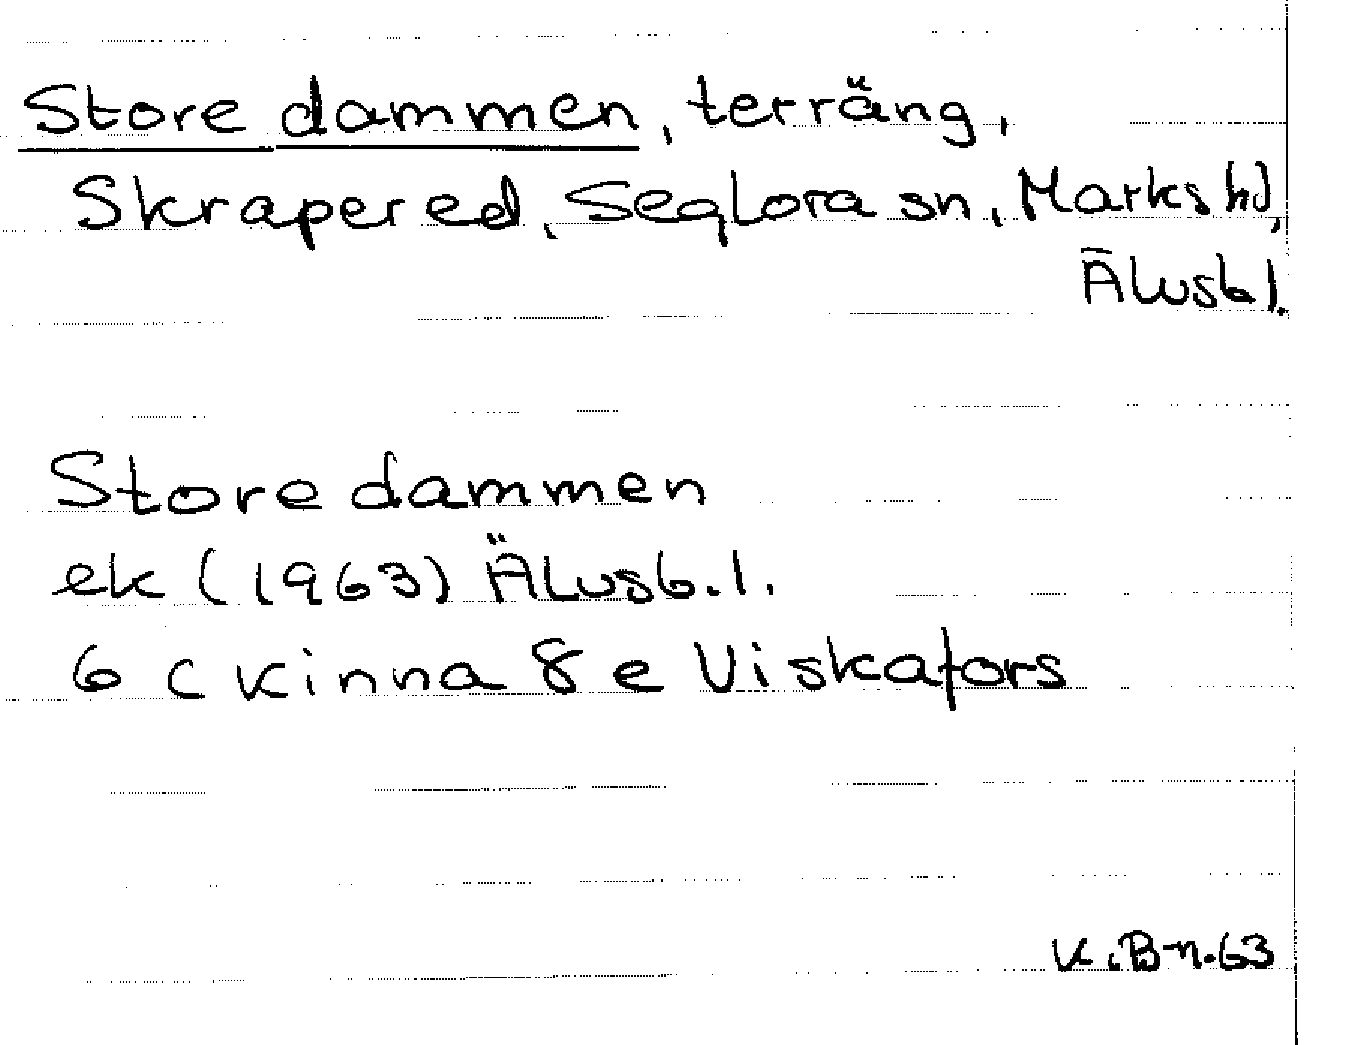 Store dammen, terräng,
Skrapered, Seglora sn, Marks hd,
Älvsb l.
Store dammen
ek (1963) Älvsb. l.
6 c Kinna 8 e Viskafors
K.B-n.63